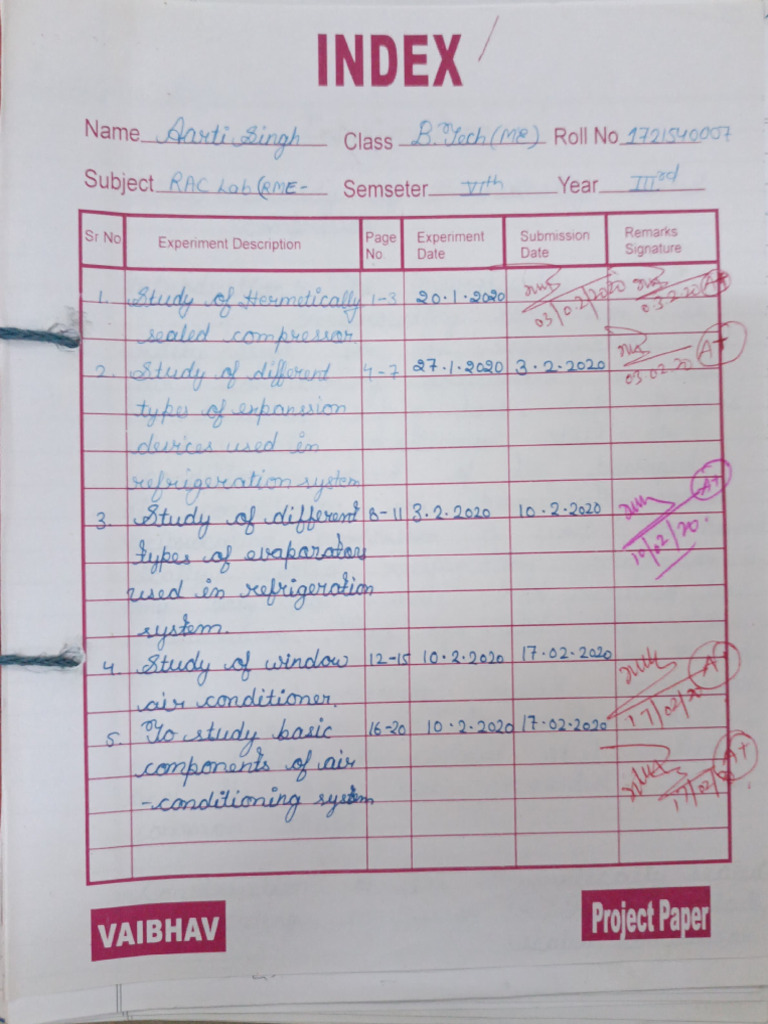 INDEX
Name Aarti Singh Class B.Tech (ME) Roll No 1721540007
Subject RAC Lab (RME- Semseter VIth Year IIIrd
Sr No Experiment Description Page No Experiment Date Submission Date Remarks Signature
1. Study of Hermetically 1-3 20.1.2020 03/02/2020 03.2.20 A+
sealed compressor
2. Study of different 4-7 27.1.2020 3.2.2020 03.02.20 A+
types of expanssion
devices used in
refrigeration system
3. Study of different 8-11 3.2.2020 10.2.2020 10/02/20. A+
types of evaporators
used in refrigeration
system.
4. Study of window 12-15 10.2.2020 17.02.2020 17/02/20 A+
air conditioner.
5. To study basic 16-20 10.2.2020 17.02.2020 17/02/20 A+
components of air
-conditioning system
VAIBHAV
Project Paper